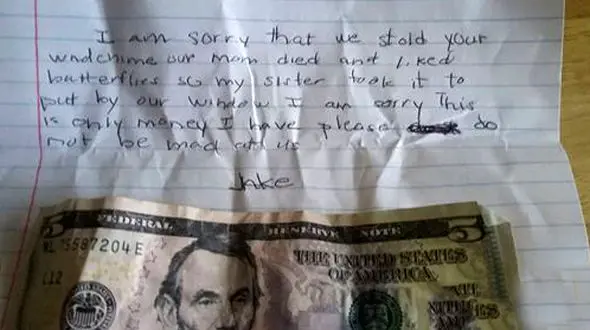 I am sorry that we stold your
windchime our mom died and liked
butterflies so my sister took it to
put by our window I am sorry This
is only money I have please do
not be mad at us
Jake
5 FEDERAL RESERVE NOTE 5
ML 15587204 E
THE UNITED STATES
OF AMERICA
L12